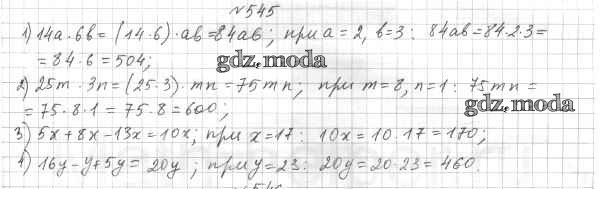 №545
1) 14a · 6b = (14·6)·ab = 84ab; при a = 2, b = 3: 84ab = 84·2·3 =
= 84·6 = 504;
gdz.moda
2) 25m · 3n = (25·3)·mn = 75mn; при m = 8, n = 1: 75mn =
= 75·8·1 = 75·8 = 600;
gdz.moda
3) 5x + 8x - 13x = 10x; при x = 17: 10x = 10·17 = 170;
4) 16y - y + 5y = 20y; при y = 23: 20y = 20·23 = 460.